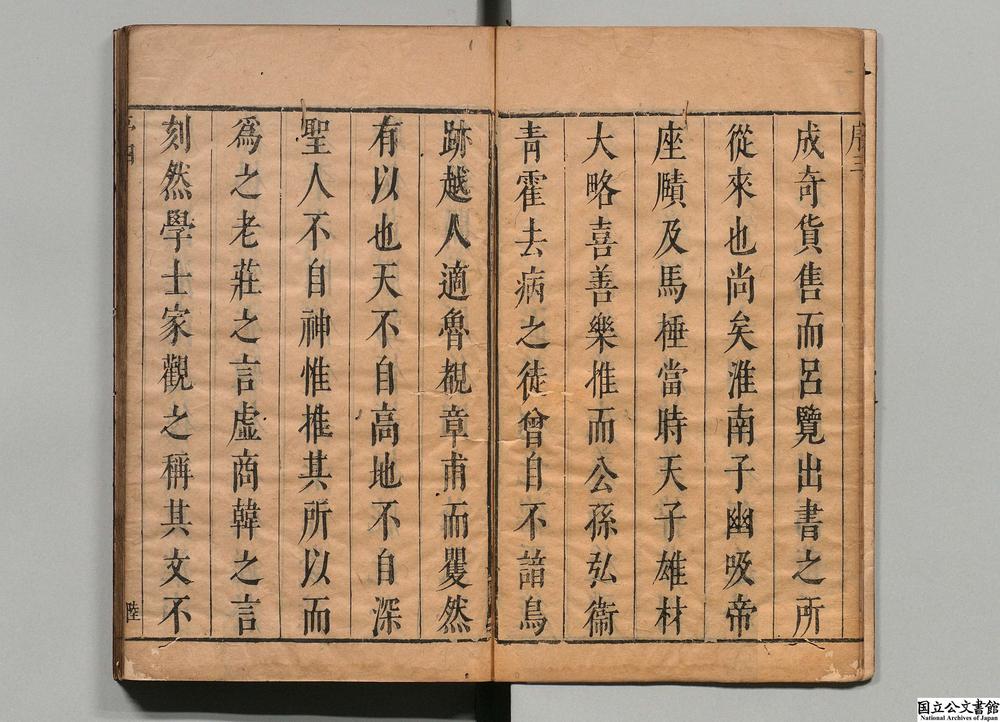 序三
成奇貨售而呂覽出書之所
從來也尚矣淮南子幽吸帝
座賾及馬棰當時天子雄材
大略喜善樂推而公孫弘衞
青霍去病之徒曾自不諳鳥
跡越人適魯覩章甫而矍然
有以也天不自高地不自深
聖人不自神惟推其所以而
爲之老莊之言虛商韓之言
刻然學士家觀之稱其文不
陸
国立公文書館
National Archives of Japan